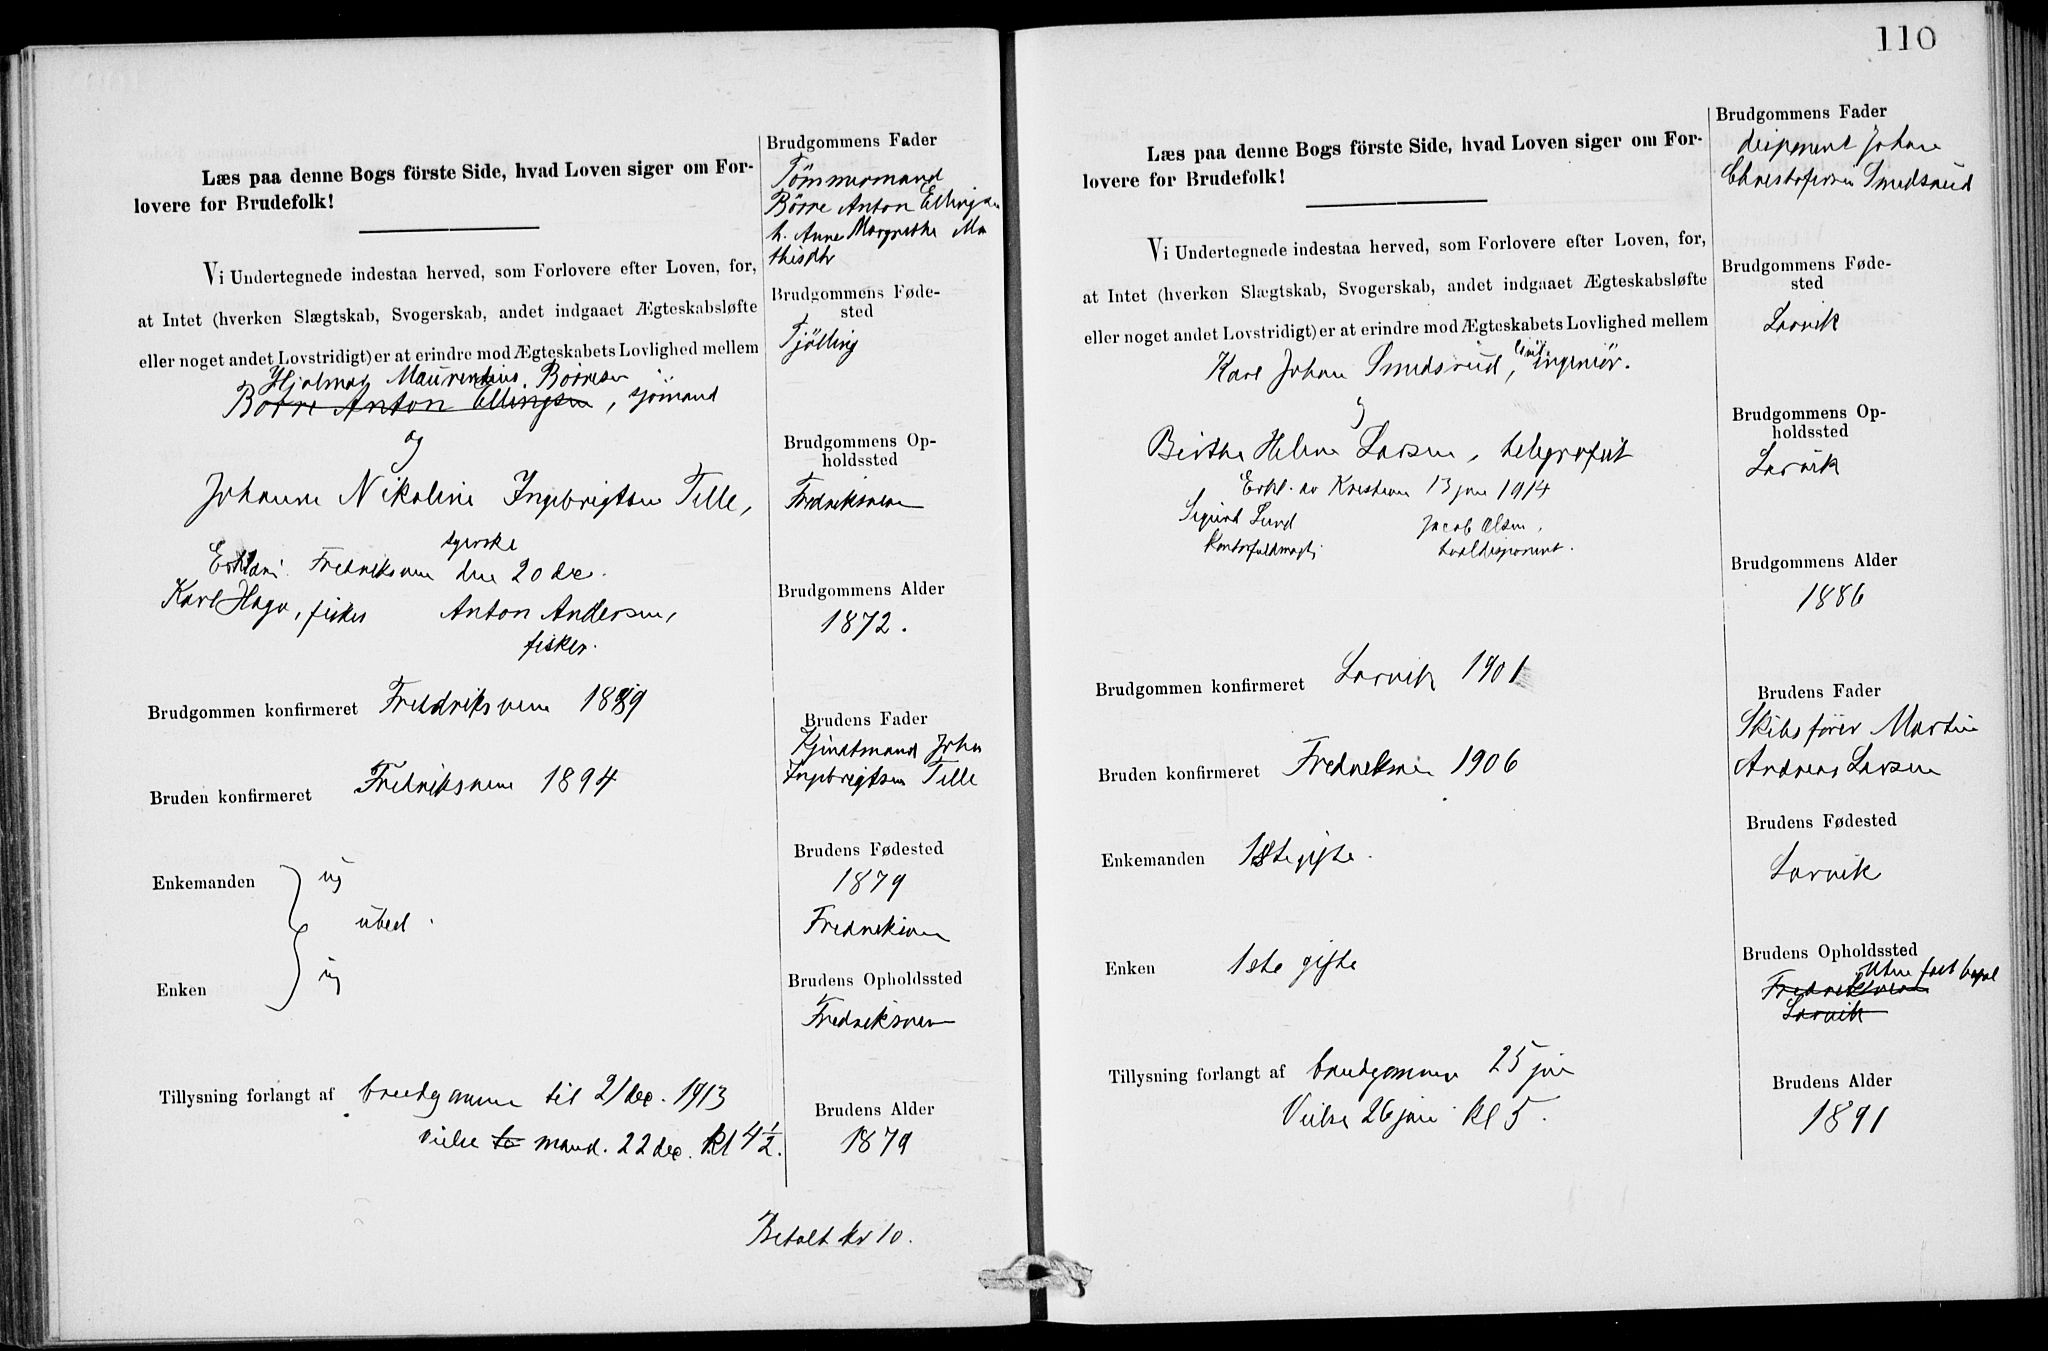 Læs paa denne Bogs förste Side, hvad Loven siger om For-
lovere for Brudefolk!
Vi Undertegnede indestaa herved, som Forlovere efter Loven, for,
at Intet (hverken Slægtskab, Svogerskab, andet indgaaet Ægteskabsløfte
eller noget andet Lovstridigt) er at erindre mod Ægteskabets Lovlighed mellem
Hjalmar Maurentius Børresen
Børre Anton Ellingsen, sjömand
og
Johanne Nikoline Ingebrigtsen Telle,
syerske
Erklæri. Fredriksvern den 20 dec.
Karl Haga, fisker Anton Andersen,
fisker.
Brudgommen konfirmeret Fredriksvern 1889
Bruden konfirmeret Fredriksvern 1894
Enkemanden ug
ubesl.
Enken ug
Tillysning forlangt af brudgommen til 21 dec. 1913
vielse to mand. 22 dec. kl 4 1/2.
Brudgommens Fader
Tömmermand
Börre Anton Ellingsen
h. Anne Margrethe Ma
thisdtr
Brudgommens Føde-
sted
Tjölling
Brudgommens Op-
holdssted
Fredriksvern
Brudgommens Alder
1872.
Brudens Fader
Kjendtmand Johan
Ingebrigtsen Telle
Brudens Fødested
1879
Fredriksvern
Brudens Opholdssted
Fredriksvern
Brudens Alder
1879
Betalt kr 10.
110
Læs paa denne Bogs förste Side, hvad Loven siger om For-
lovere for Brudefolk!
Vi Undertegnede indestaa herved, som Forlovere efter Loven, for,
at Intet (hverken Slægtskab, Svogerskab, andet indgaaet Ægteskabsløfte
eller noget andet Lovstridigt) er at erindre mod Ægteskabets Lovlighed mellem
Karl Johan Smedsrud, ingeniör.
og
Birthe Helene Larsen, telegrafist
Erkl. av 13 jan 1914
Sigurd Lund Jacob Olsen,
kontorfuldmægti
Brudgommen konfirmeret Larvik 1901
Bruden konfirmeret Fredriksvern 1906
Enkemanden 1ste gifte.
Enken 1ste gifte
Tillysning forlangt af brudgommen 25 jan
Vielse 26 jan kl 5.
Brudgommens Fader
disponent Johan
Christofersen Smedsrud
Brudgommens Føde-
sted
Larvik
Brudgommens Op-
holdssted
Larvik
Brudgommens Alder
1886
Brudens Fader
Skibsförer Martin
Andreas Larsen
Brudens Fødested
Larvik
Brudens Opholdssted
Uten fast bopæl
Fredriksvern
Larvik
Brudens Alder
1891